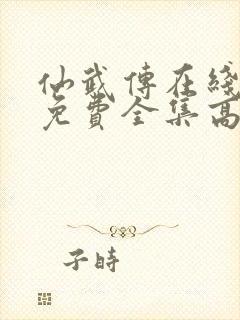 仙武傳在綫
免費全集高
子時